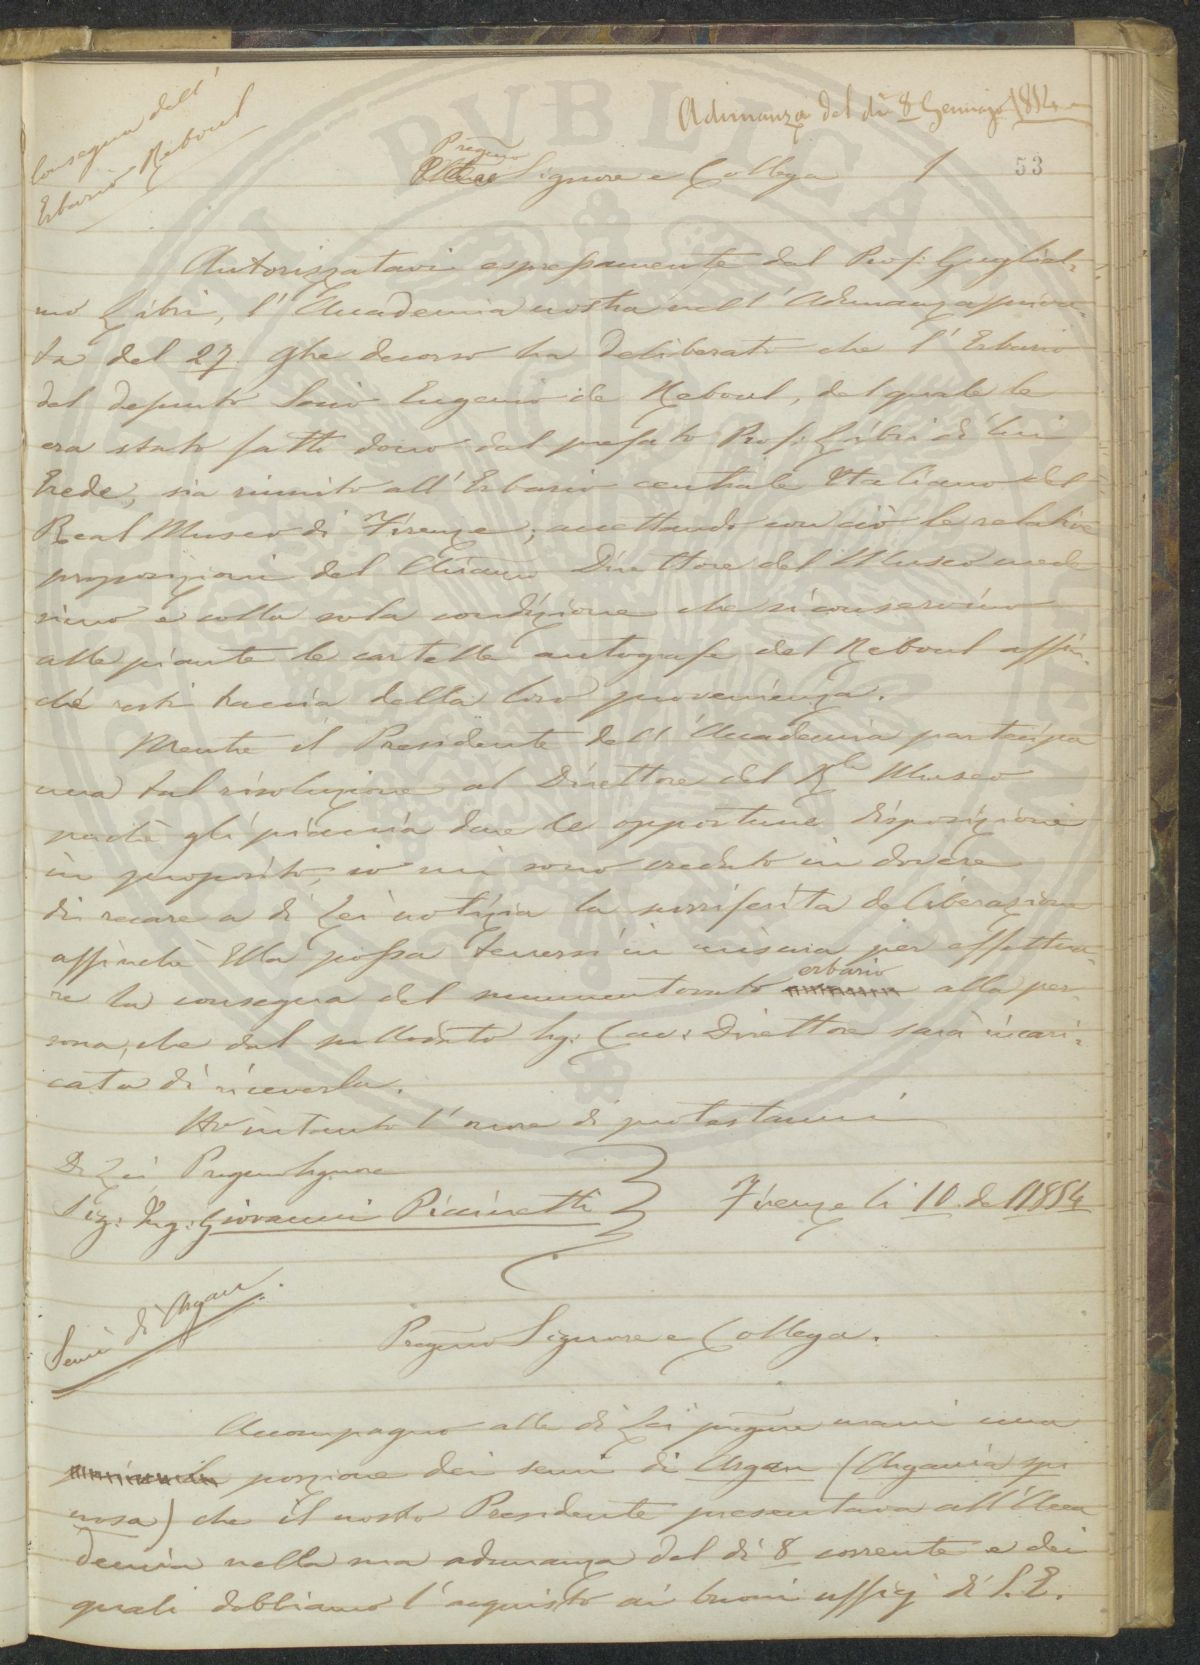 Adunanza del dì 8 Gennajo 1854
Consegna dell'
Erbario Reboul
Pregmo
Signore e Collega
1
53
Autorizzatavi espressamente dal Prof: Gugliel-
mo Libri, l'Accademia nostra nell'Adunanza priva-
ta del 27 9bre decorso ha deliberato che l'Erbario
del defunto Socio Eugenio de Reboul, del quale le
era stato fatto dono dal prefato Prof: Libri di lui
Erede, sia riunito all'Erbario centrale Italiano del
Real Museo di Firenze; accettando con ciò le relative
proposizioni del Chiarmo Direttore del Museo mede
simo e colla sola condizione che si conservino
alle piante le cartelle autografe del Reboul affin-
ché resti traccia della loro provenienza.
Mentre il Presidente dell'Accademia partecipa
una tal risoluzione al Direttore del Rle Museo
perché gli piaccia dare le opportune disposizioni
in proposito, io mi sono creduto in dovere
di recare a di Lei notizia la surriferita deliberazione
affinchè Ella possa tenersi in misura per effettua-
re la consegna del summentovato erbario alla per
sona, che dal sullodato Sig: Cav: Direttore sarà incari-
cata di riceverla.
Ho intanto l'onore di protestarmi
Di Lei Pregmo Signore
Sig: Ing: Giovanni Piccinetti
Firenze li 10 del 1 1854
Semi di Argan.
Pregmo Signore e Collega.
Accompagno alle di Lei pregme mani una
porzione dei semi di Argan (Argania spi
nosa) che il nostro Presidente presentava all'Acca
demia nella sua adunanza del dì 8 corrente e dei
quali dobbiamo l'acquisto ai buoni uffizj di S. E.